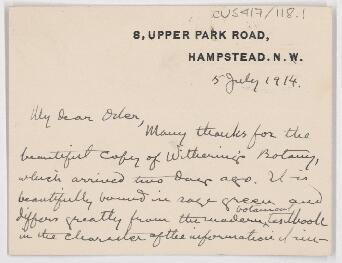 CUS417/118.1
8, UPPER PARK ROAD,
HAMPSTEAD. N. W.
5 July 1914.
My dear Osler,
Many thanks for the
beautiful copy of Withering's Botany,
which arrived two days ago. It is
beautifully bound in sage green and
botanical
differs greatly from the modern textbook
in the character of the information